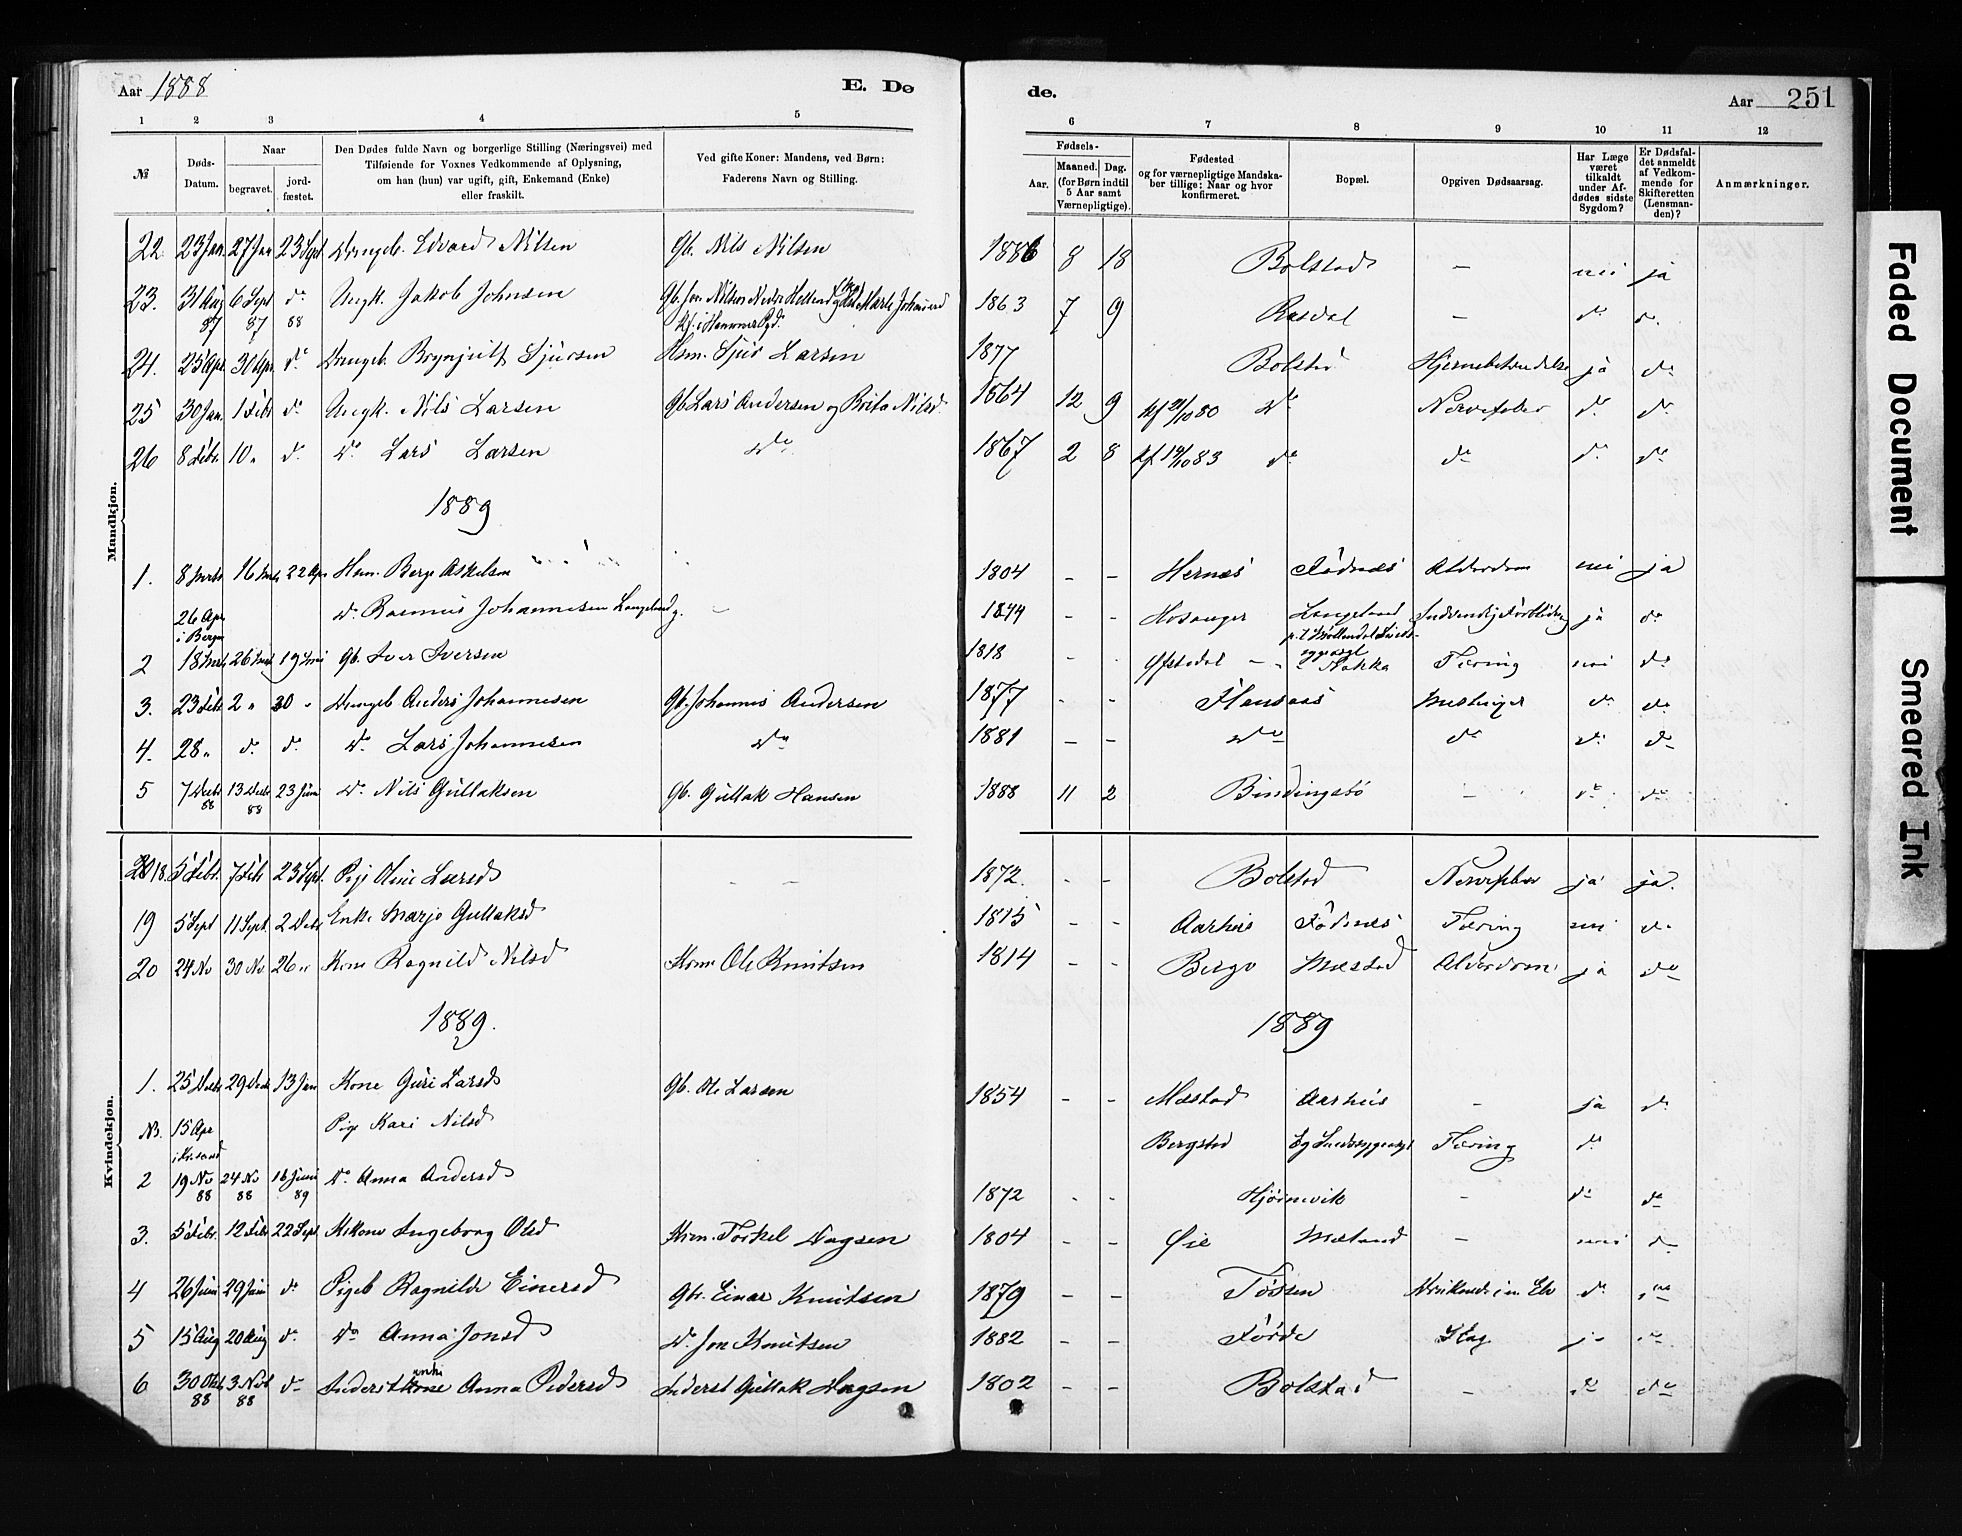 Aar 1888
E. Dø
de.
Aar 251
1 2 3 4 5 6 7 8 9 10 11 12
№
Døds-Datum.
Naar
begravet.
jord-fæstet.
Den Dødes fulde Navn og borgerlige Stilling (Næringsvei) med
Tilføiende for Voxnes Vedkommende af Oplysning,
om han (hun) var ugift, gift, Enkemand (Enke)
eller fraskilt.
Ved gifte Koner: Mandens, ved Børn:
Faderens Navn og Stilling.
Fødsels-
Aar.
Maaned. Dag.
(for Børn indtil
5 Aar samt
Værnepligtige).
Fødested
og for værnepligtige Mandska-
ber tillige: Naar og hvor
konfirmeret.
Bopæl.
Opgiven Dødsaarsag.
Har Læge
været
tilkaldt
under Af-
dødes sidste
Sygdom?
Er Dødsfal-
det anmeldt
af Vedkom-
mende for
Skifteretten
(Lensman-
den)?
Anmærkninger.
Mandkjøn.
22 23 Jan. 27 Jan 23 Sept Drengeb. Edvard Nilsen Gb. Nils Nilsen 1886 8 18 Bolstad – nei ja
23. 31 Aug 87 6 Sept 87 do 88 Ungk. Jakob Johnsen 1863 7 9 Rasdal – do do
24. 25 Apr 30 Apr. do Drengeb. Brynjulf Sjursen Hsm. Sjur Larsen 1877 Bolstad Hjernebetændelse ja do
25 30 Jan. 1 Febr do Ungk. Nils Larsen Gb Lars Andersen og Brita Nilsd. 1864 12 9 do Nervefeber do do
26 8 Febr. 10 „ do do Lars Larsen do 1867 2 8 do do do do
1889
1. 8 Marts 16 Mrts 22 Apr Hsm. Berge Askelsen 1804 – – Hernæs Fødnæs Alderdom nei ja
26 Apr i Bergen do Rasmus Johannesen Langeland – 1844 - - Hosanger Langeland ja do
2 18 Mrts 26 Mrts 19 Juni Gb. Iver Iversen 1818 - - Nakka Tæring nei do
3. 23 Febr 2 „ 20 „ Drengeb Anders Johannesen Gb. Johannes Andersen 1877 - - Mæslinger do do
4. 28 „ do do do Lars Johannesen do 1881 – – do do do do
5 7 Decbr 88 13 Decbr 88 23 Juni do Nils Gullaksen Gb. Gullak Hansen 1888 11 2 Bindingsbø – do do
Kvindekjøn.
18. 5 Febr. 7 Febr 23 Sept. Pige Oline Larsd – – 1872. - – Bolstad Nervefeber ja ja.
19 5 Sept 11 Sept 2 Decbr Enke Marje Gullaksd 1815 - - Aarhus Fødnæs Tæring nei do
20 24 No 30 No 26 „ Kone Ragnild Nilsd Kone Ole Knutsen 1814 - - Berge Mæstad Alderdom ja do
1889.
1889
1. 25 Decbr 29 Decbr 13 Jan Kone Guri Larsd Gb. Ole Larsen 1854 – – Mæstad Aarhus – ja do
15 Apr Pige Kari Nilsd Bergstad Tæring do
2 19 No 88 24 No 88 16 Juni 89 do Anna Andersd 1872 - - Hjørnevik – do do
3. 5 Febr. 12 Febr 22 Sept. Ingeborg Olsd Torkel Dagsen 1804 – – Øie – nei do
4 26 Juni 29 Juni do Pigeb Ragnilde Einersd Gbr. Einar Knutsen 1879 – – Tøssen do
5 15 Aug 20 Aug do do Anna Jonsd do Jon Knutsen 1882 – – Førde Slag ja do
6 30 Okt 88 3 Nov 88 do Inderstenke Anna Pedersd Inderst Gullak 1802 – – Bolstad – do do
Faded Document
Smeared Ink